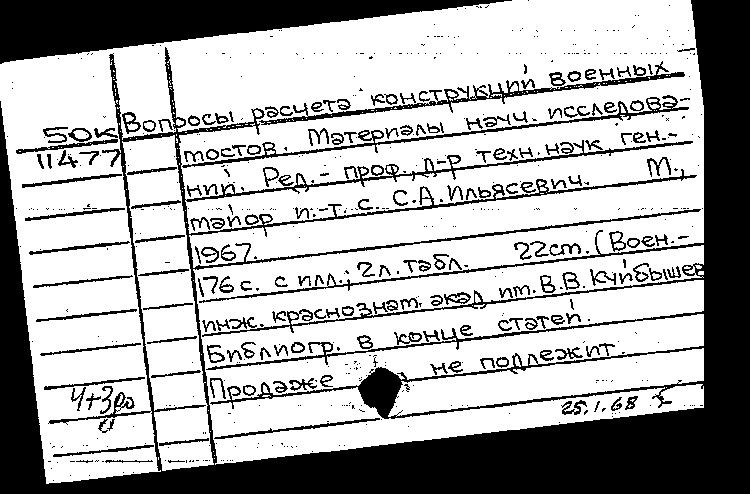 50к Вопросы расчета конструкций военных
11477 мостов. Материалы науч. исследова-
ний. Ред.- проф., д-р техн. наук, ген.-
майор и.-т. с. С.А. Ильясевич. М.,
1967.
176 с. с илл.; 2 л. табл. 22 см. (Воен.-
инж. краснознам. акад. им. В.В. Куйбышев
Библиогр. в конце статей.
Продаже не подлежит.
25.1.68